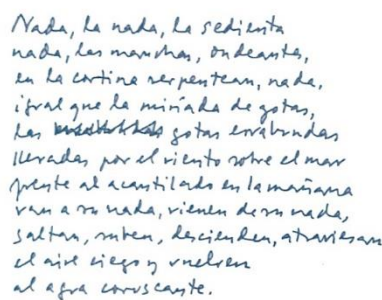 Nada, la nada, la sedienta
nada, las manchas, ondeantes,
en la cortina serpentean, nada,
igual que la miríada de gotas,
las gotas errabundas
llevadas por el viento sobre el mar
frente al acantilado en la mañana
van a su nada, vienen de su nada,
saltan, suben, descienden, atraviesan
el aire ciego y vuelven
al agua coruscante.